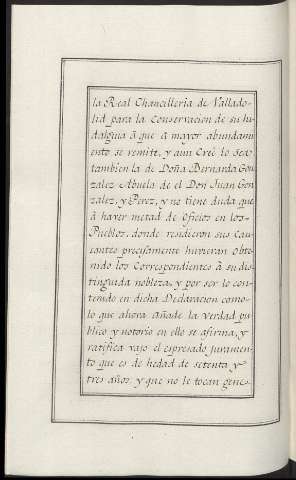 la Real Chancilleria de Vallado-
lid para la Conservacion de su hi
dalguia à que à mayor abundami
ento se remite, y aun Creé lo sea
tambien la de Doña Bernarda Gon
zalez Abuela de el Don Juan Gon
zalez, y Perez, y no tiene duda que
à haver metad de Oficios en los
Pueblos, donde residieron sus Cau
santes precisamente huvieran Obte
nido los Correspondientes à su dis
tinguida nobleza, y por ser lo con
tenido en dicha Declaracion como
lo que ahora añade la Verdad pu
blico y notorio en ello se afirma, y
ratifica vajo el espresado Juramen
to que es de hedad de setenta y
tres años, y que no le tocan gene